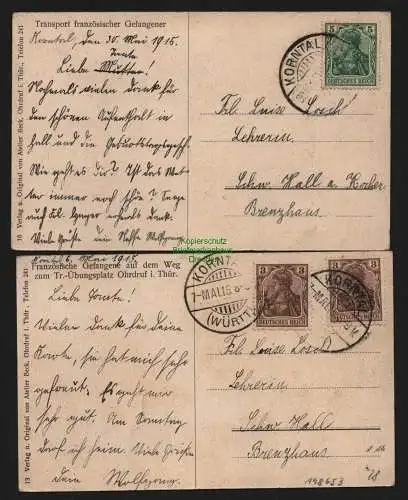 Transport französischer Gefangener
Korntal, den 30. Mai 1915.
Liebe Tante
Nochmals vielen Dank für
den schönen Aufenthalt in
Hall und die
Wie geht es dir? Ist das Wet-
ter immer noch schön?
Viele Grüße dein Neffe Wolfgang
18 Verlag u. Original von Atelier Beck, Ohrdruf i. Thür. Telefon 241
KORNTAL
5 5
DEUTSCHES REICH
Frl. Luise Losch
Lehrerin
Schw. Hall a. Kocher
Brenzhaus
Kopierschutz
Korntal 6. Mai 1915.
Französische Gefangene auf dem Weg
zum Tr.-Übungsplatz Ohrdruf i. Thür.
Liebe Tante!
Vielen Dank für deine
Karte, sie hat mich sehr
gefreut. Es geht mir
sehr gut. Am Sonntag
darf ich heim. Viele Grüße
dein Wolfgang.
13 Verlag u. Original von Atelier Beck, Ohrdruf i. Thür. Telefon 241
KORNT
7-MAI.15
(WÜRTT.)
3 3
DEUTSCHES REICH
KORNT
3
Frl. Luise Losch
Lehrerin
Schw. Hall
Brenzhaus
198653